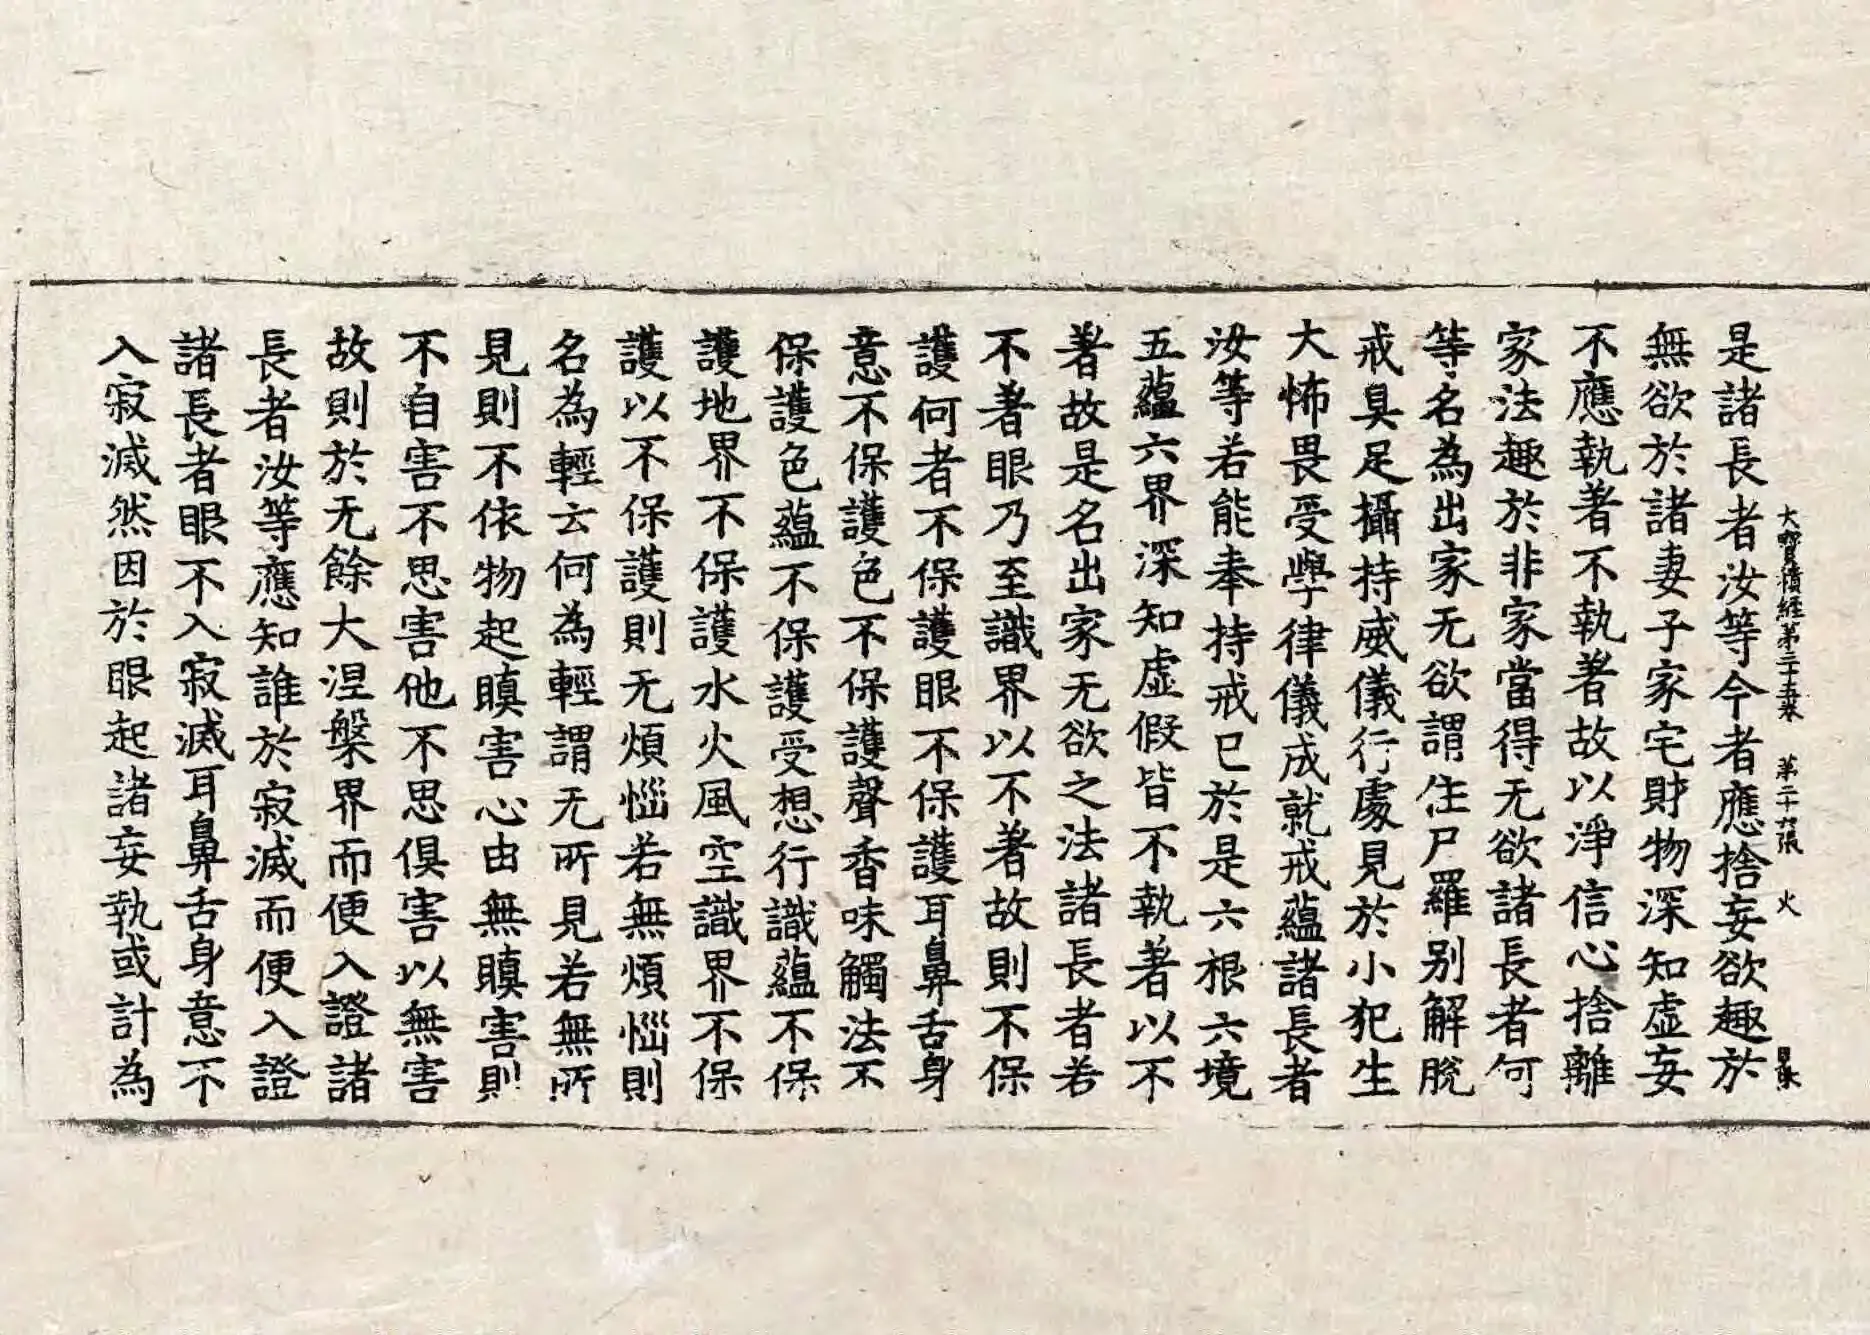 大寶積經第三十五卷　第二十九張　火
是諸長者汝等今者應捨妄欲趣於
無欲於諸妻子家宅財物深知虛妄
不應執著不執著故以淨信心捨離
家法趣於非家當得无欲諸長者何
等名為出家无欲謂住尸羅別解脫
戒具足攝持威儀行處見於小犯生
大怖畏受學律儀成就戒蘊諸長者
汝等若能奉持戒已於是六根六境
五蘊六界深知虛假皆不執著以不
著故是名出家无欲之法諸長者若
不著眼乃至識界以不著故則不保
護何者不保護眼不保護耳鼻舌身
意不保護色不保護聲香味觸法不
保護色蘊不保護受想行識蘊不保
護地界不保護水火風空識界不保
護以不保護則无煩惱若無煩惱則
名為輕云何為輕謂无所見若無所
見則不依物起瞋害心由無瞋害則
不自害不思害他不思俱害以無害
故則於无餘大涅槃界而便入證諸
長者汝等應知誰於寂滅而便入證
諸長者眼不入寂滅耳鼻舌身意不
入寂滅然因於眼起諸妄執或計為